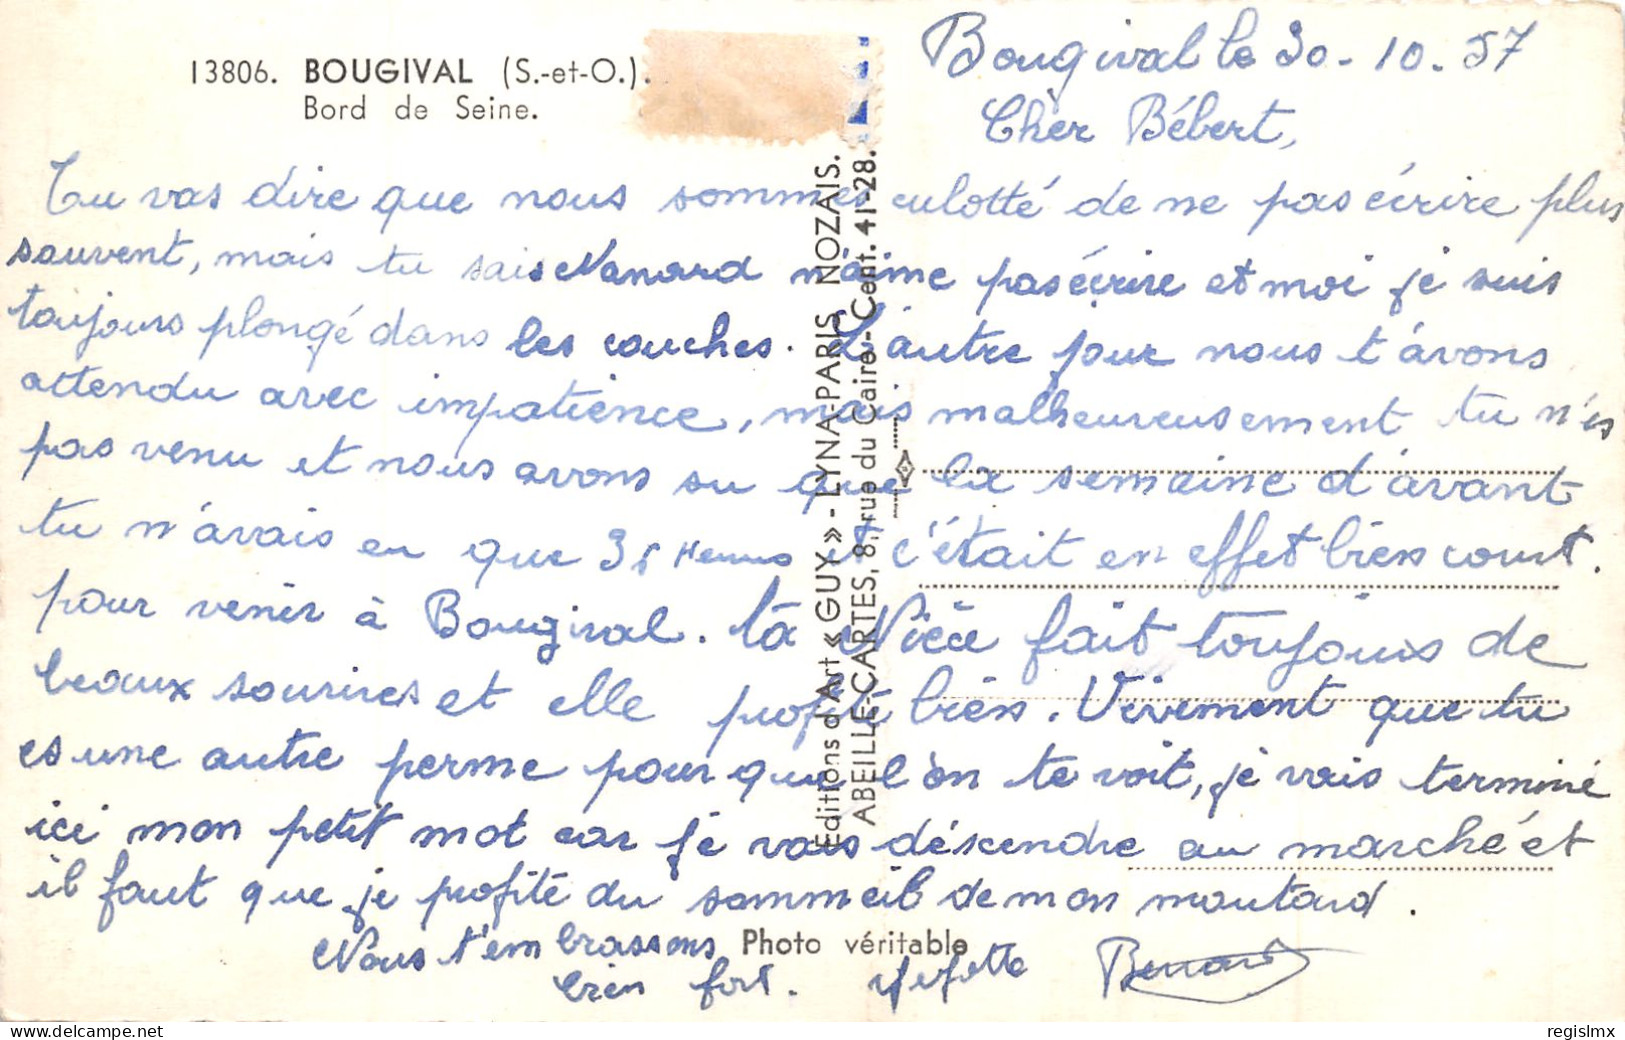 13806. BOUGIVAL (S.-et-O.).
Bord de Seine.
Bougival le 30-10-57
Cher Bébert,
Tu vas dire que nous sommes culotté de ne pas écrire plus
souvent, mais tu sais Nanard n'aime pas écrire et moi je suis
toujours plongé dans les couches. L'autre jour nous t'avons
attendu avec impatience, mais malheureusement tu n'es
pas venu et nous avons su que la semaine d'avant
tu n'avais eu que 36 Heures et c'était en effet bien court.
pour venir à Bougival. ta Nièce fait toujours de
beaux sourires et elle profite bien. Vivement que tu
es une autre perme pour que l'on te voit, je vais terminé
ici mon petit mot car je vais déscendre au marché et
il faut que je profite du sommeil de mon moutard.
Nous t'embrassons
bien fort.
Bernard
Editions d'Art « GUY » - LYNA-PARIS, NOZAIS.
ABEILLE-CARTES, 8, rue du Caire - Cent. 41-28.
Photo véritable
regislmx